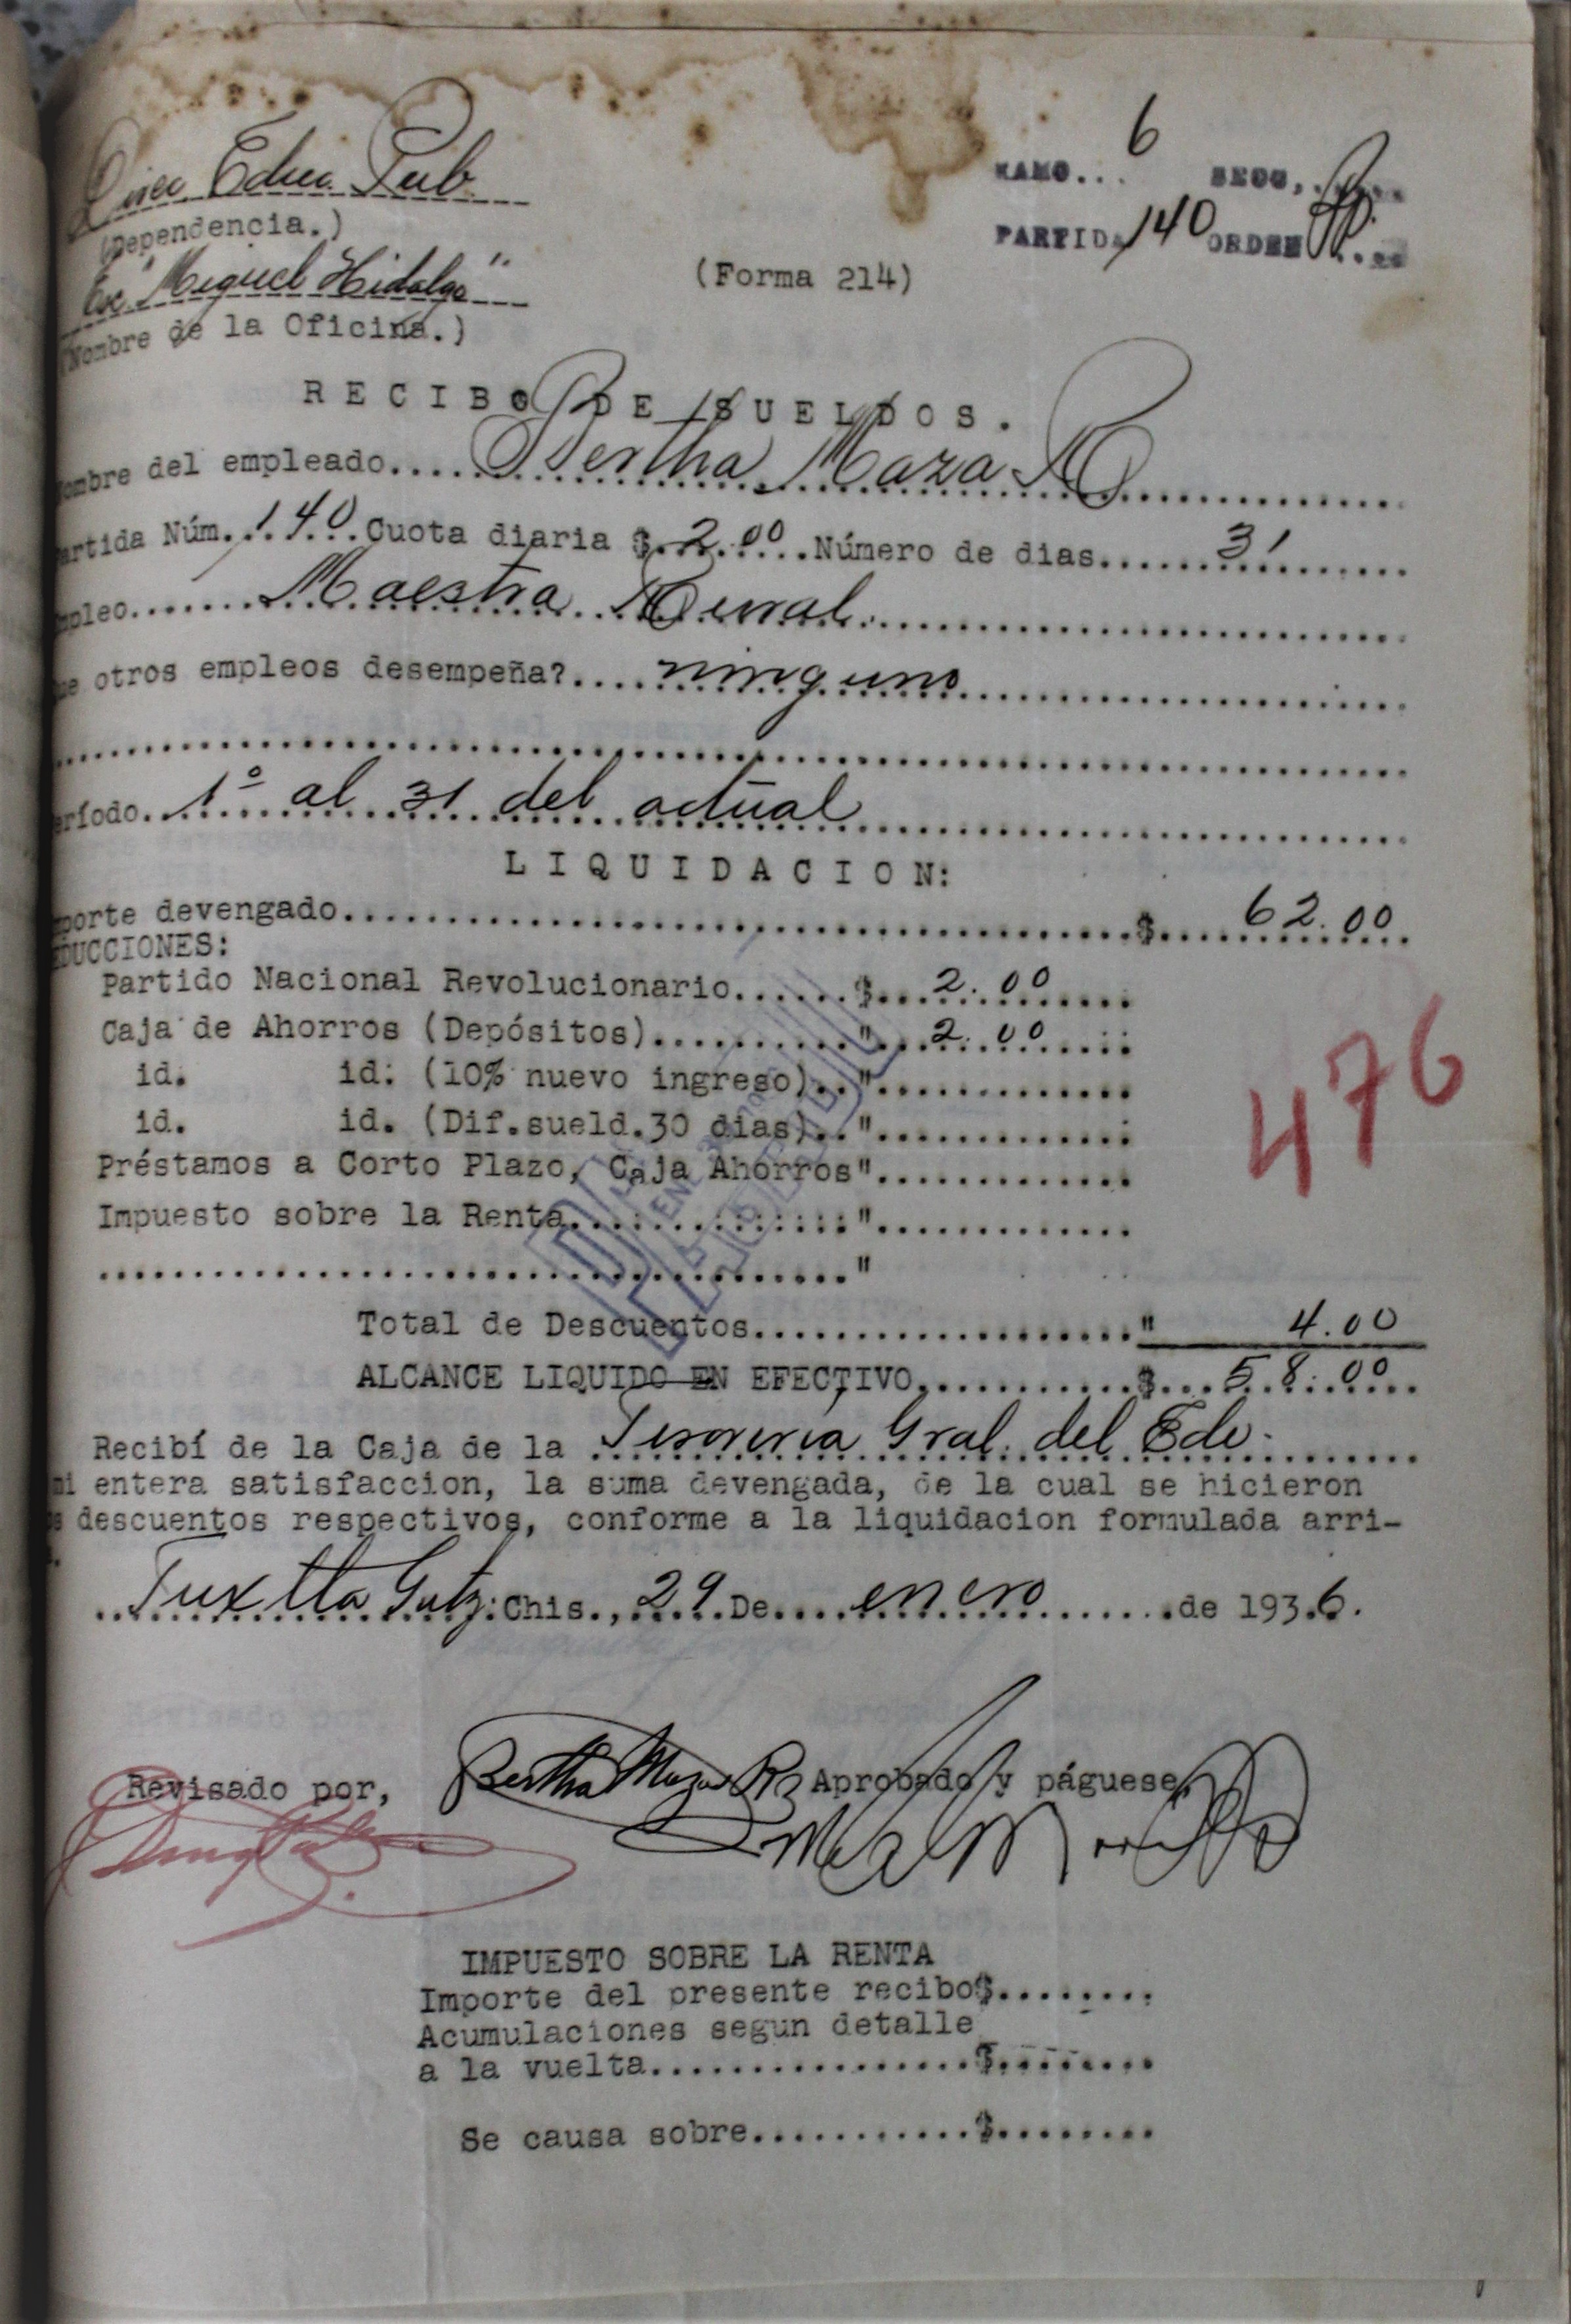 Educ. Pub.
(Dependencia.)
RAMO... 6 SECC,.....
PARTIDA 140 ORDEN ....
Esc "Miguel Hidalgo"
(Forma 214)
(Nombre de la Oficina.)
RECIBO DE SUELDOS.
ombre del empleado..... Bertha Maza R
artida Núm. 140 Cuota diaria $ 2.00 Número de dias...... 31
mpleo....... Maestra Rural
ue otros empleos desempeña?.... ninguno
eríodo. 1º al 31 del actual
LIQUIDACION:
mporte devengado.......................................$ 62.00
DUCCIONES:
Partido Nacional Revolucionario......$ 2.00
Caja de Ahorros (Depósitos)..........." 2.00
id. id. (10% nuevo ingreso).."............
id. id. (Dif.sueld.30 dias).."............
Préstamos a Corto Plazo, Caja Ahorros"............
476
Impuesto sobre la Renta.............."............
...................................."
Total de Descuentos..................." 4.00
ALCANCE LIQUIDO EN EFECTIVO...........$ 58.00
Recibí de la Caja de la Tesorería Gral. del Edo.
mi entera satisfaccion, la suma devengada, de la cual se hicieron
s descuentos respectivos, conforme a la liquidacion formulada arri-
Tuxtla Gutz. Chis., 29 De enero de 1936.
Revisado por, Bertha Maza Rz Aprobado y páguese,
IMPUESTO SOBRE LA RENTA
Importe del presente recibo$........
Acumulaciones segun detalle
a la vuelta...............$........
Se causa sobre..........$........